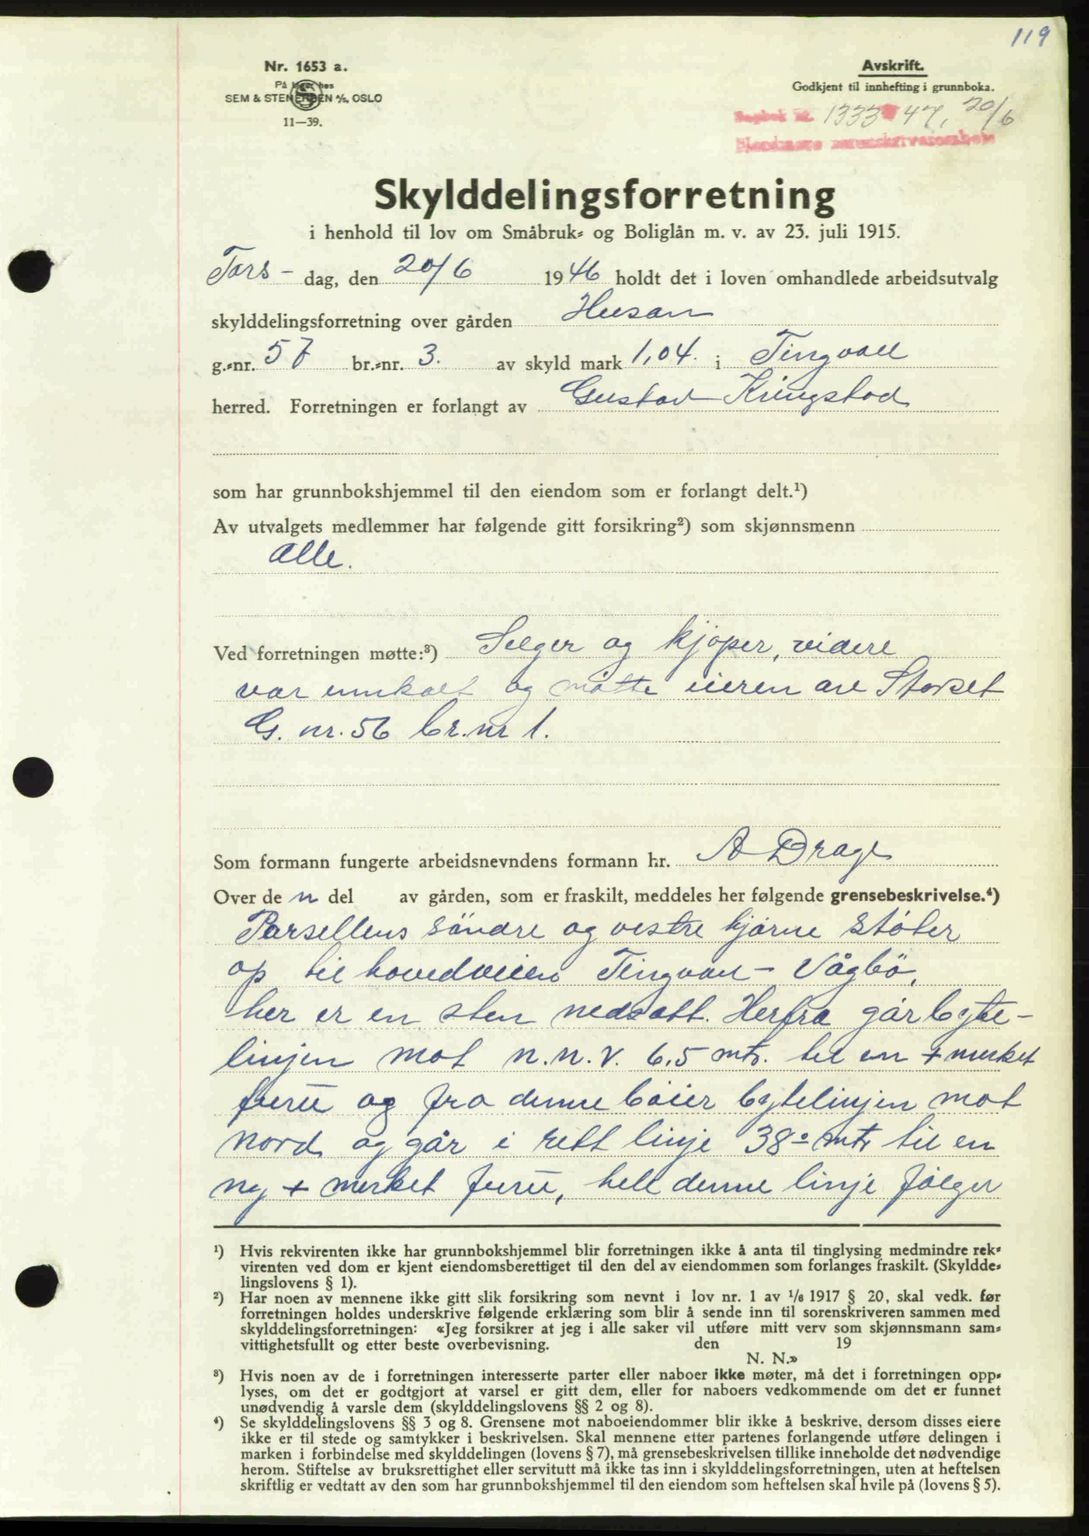 119
Nr. 1653 a.
På lager hos
SEM & STENERSEN A/S, OSLO
11—39.
Avskrift.
Godkjent til innhefting i grunnboka.
Dagbok nr. 1333 47, 20/6
Nordmøre sorenskriverembete
Skylddelingsforretning
i henhold til lov om Småbruk- og Boliglån m. v. av 23. juli 1915.
Tors- dag, den 20/6 1946 holdt det i loven omhandlede arbeidsutvalg
skylddelingsforretning over gården Husan
g.-nr. 57 br.-nr. 3. av skyld mark 1,04. i Tingvoll
herred. Forretningen er forlangt av Gustav Kringstad
som har grunnbokshjemmel til den eiendom som er forlangt delt.¹)
Av utvalgets medlemmer har følgende gitt forsikring²) som skjønnsmenn
alle.
Ved forretningen møtte:³) Selger og kjøper, videre
var innkalt og møtte eieren av Storset
G. nr. 56 br. nr 1.
Som formann fungerte arbeidsnevndens formann hr. A Drage
Over de n del av gården, som er fraskilt, meddeles her følgende grensebeskrivelse.⁴)
Parsellens søndre og vestre hjørne støter
op til hovedveien Tingvoll - Vågbø,
her er en sten nedsatt. Herfra går bytte-
linjen mot n.n.v. 6,5 mtr. til en + merket
furu og fra denne bøier byttelinjen mot
nord og går i rett linje 38⁰ mtr til en
ny + merket furu, hell denne linje følger
¹) Hvis rekvirenten ikke har grunnbokshjemmel blir forretningen ikke å anta til tinglysing medmindre rek-
virenten ved dom er kjent eiendomsberettiget til den del av eiendommen som forlanges fraskilt. (Skyldde-
lingslovens § 1).
²) Har noen av mennene ikke gitt slik forsikring som nevnt i lov nr. 1 av 1/6 1917 § 20, skal vedk. før
forretningen holdes underskrive følgende erklæring som blir å sende inn til sorenskriveren sammen med
skylddelingsforretningen: «Jeg forsikrer at jeg i alle saker vil utføre mitt verv som skjønnsmann sam-
vittighetsfullt og etter beste overbevisning. den 19
N. N.»
³) Hvis noen av de i forretningen interesserte parter eller naboer ikke møter, må det i forretningen opp-
lyses, om det er godtgjort at varsel er gitt dem, eller for naboers vedkommende om det er funnet
unødvendig å varsle dem (skylddelingslovens §§ 2 og 8).
⁴) Se skylddelingslovens §§ 3 og 8. Grensene mot naboeiendommer blir ikke å beskrive, dersom disses eiere
ikke er til stede og samtykker i beskrivelsen. Skal mennene etter partenes forlangende utføre delingen i
marken i forbindelse med skylddelingen (lovens § 7), må grensebeskrivelsen tillike inneholde det nødvendige
herom. Stiftelse av bruksrettighet eller servitutt må ikke tas inn i skylddelingsforretningen, uten at heftelsen
skriftlig er vedtatt av den som har grunnbokshjemmel til den eiendom som heftelsen skal hvile på (lovens § 5).